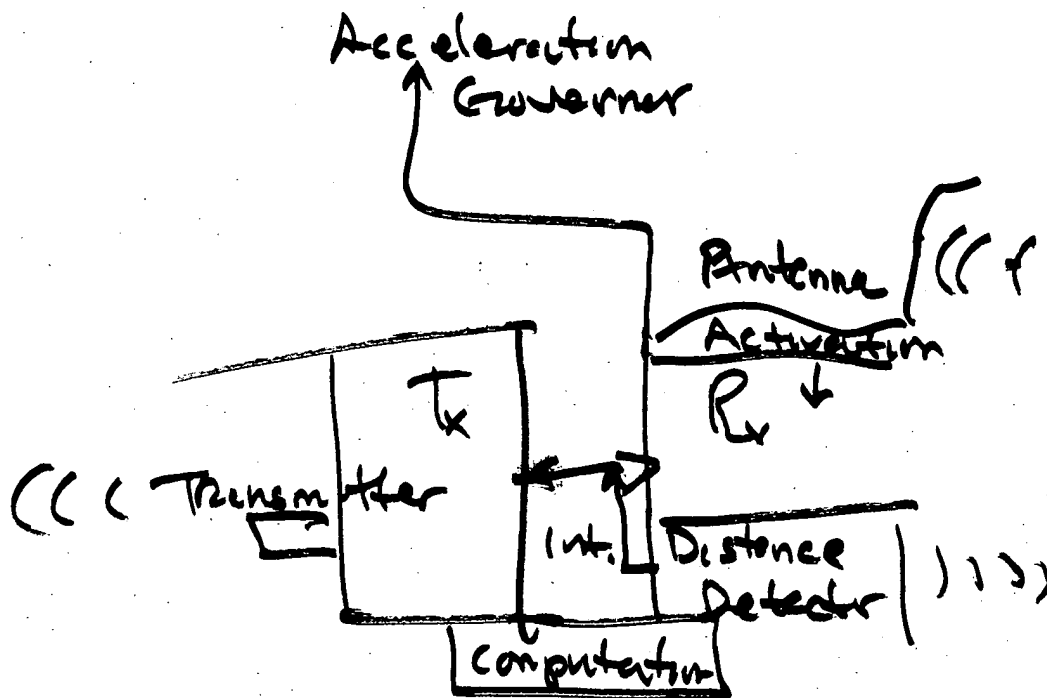 Acceleration
Governer
Antenna
Activation
Tx
Rx
Transmitter
Int.
Distance
Detector
Computation